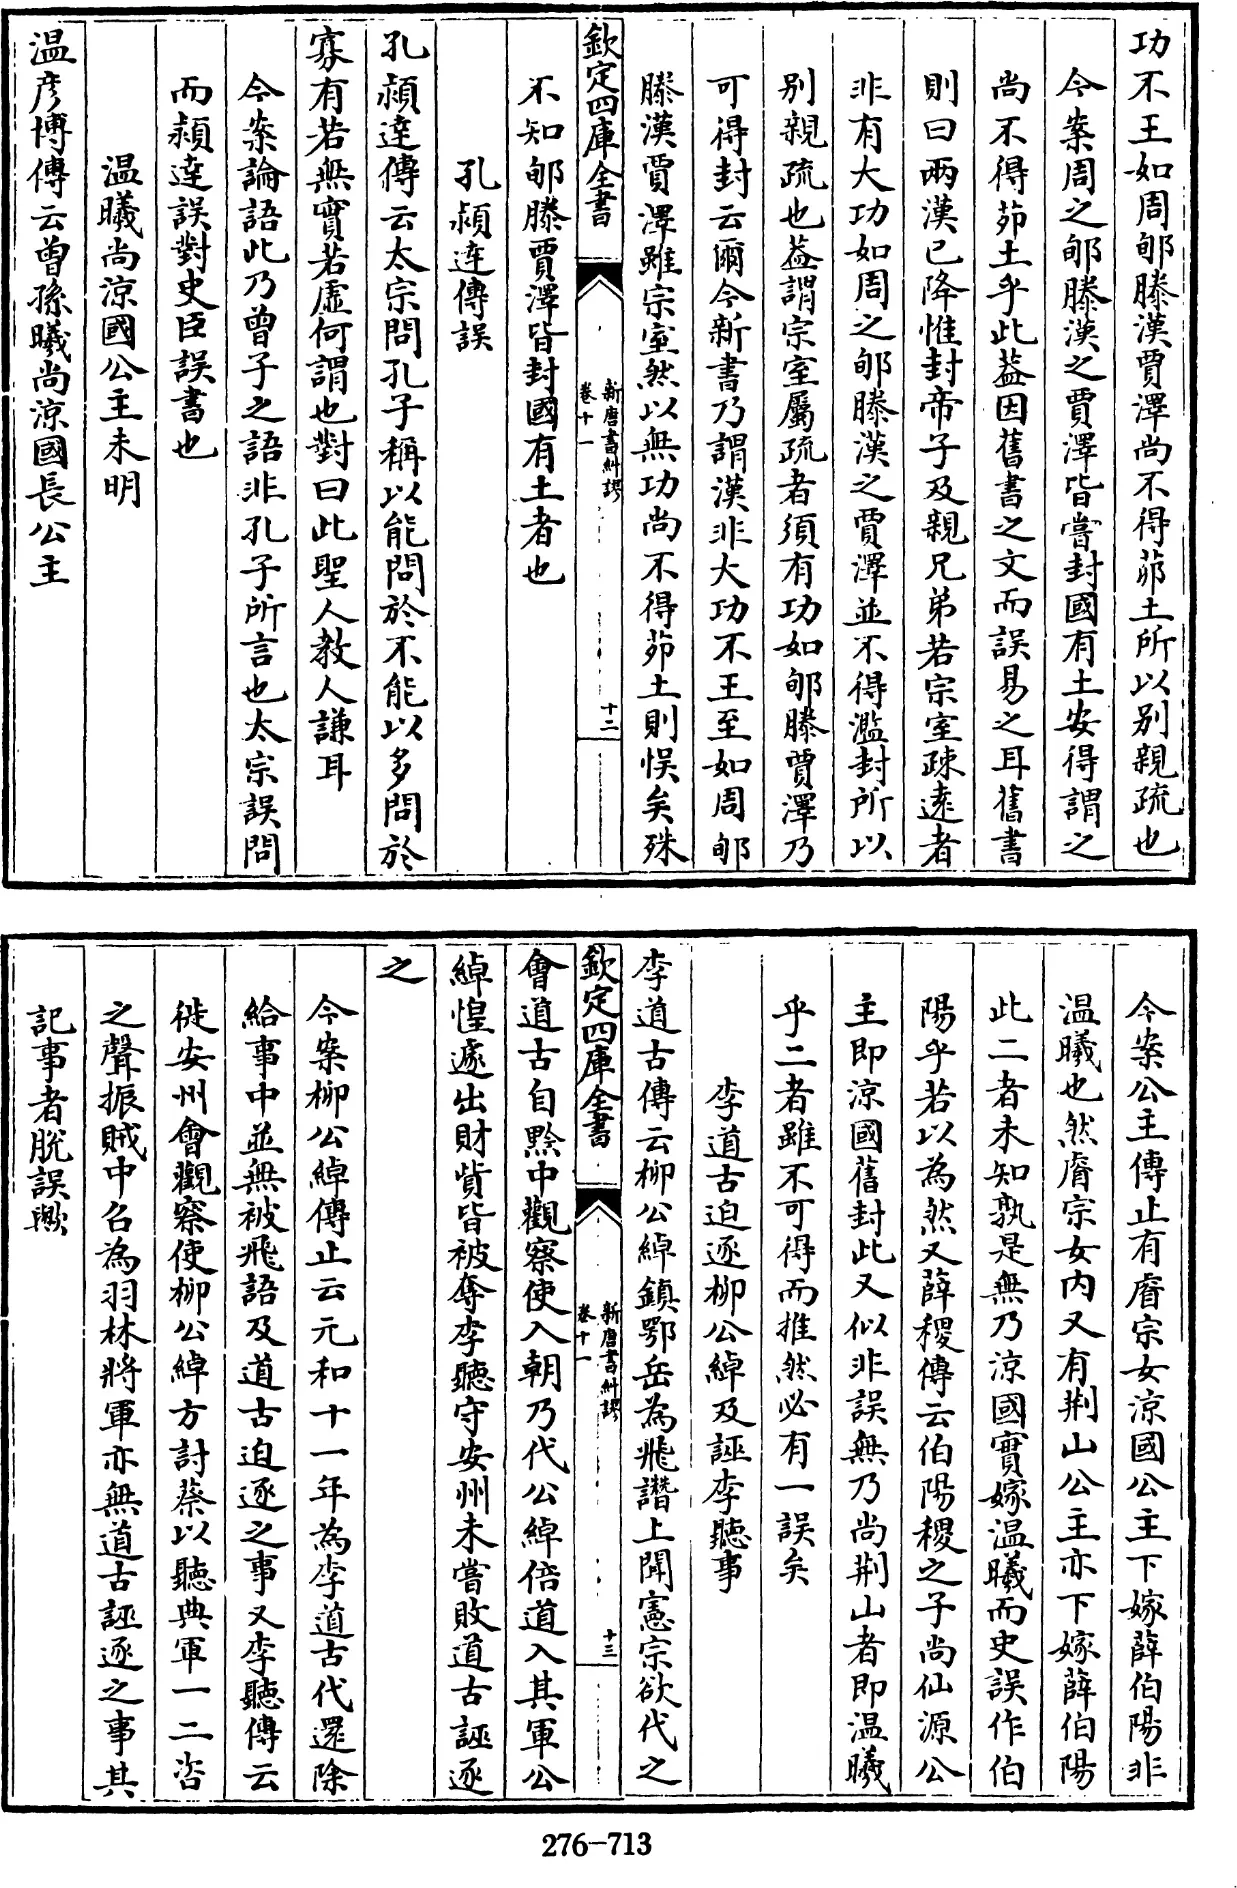 功不王如周郇滕漢賈澤尚不得茆土所以別親疏也
今案周之郇滕漢之賈澤皆嘗封國有土安得謂之
尚不得茆土乎此葢因舊書之文而誤易之耳舊書
則曰兩漢已降惟封帝子及親兄弟若宗室疎逺者
非有大功如周之郇滕漢之賈澤並不得濫封所以
別親疏也葢謂宗室屬疏者須有功如郇滕賈澤乃
可得封云爾今新書乃謂漢非大功不王至如周郇
滕漢賈澤雖宗室然以無功尚不得茆土則悞矣殊
欽定四庫全書
新唐書糾謬
卷十一
十二
不知郇滕賈澤皆封國有土者也
孔頴逹傳誤
孔頴逹傳云太宗問孔子稱以能問於不能以多問於
寡有若無實若虛何謂也對曰此聖人教人謙耳
今案論語此乃曾子之語非孔子所言也太宗誤問
而頴逹誤對史臣誤書也
温曦尚涼國公主未明
温彦博傳云曾孫曦尚涼國長公主
今案公主傳止有睿宗女涼國公主下嫁薛伯陽非
温曦也然睿宗女内又有荆山公主亦下嫁薛伯陽
此二者未知孰是無乃涼國實嫁温曦而史誤作伯
陽乎若以為然又薛稷傳云伯陽稷之子尚仙源公
主即涼國舊封此又似非誤無乃尚荆山者即温曦
乎二者雖不可得而推然必有一誤矣
李道古迫逐柳公綽及誣李聽事
李道古傳云柳公綽鎮鄂岳為飛譖上聞憲宗欲代之
欽定四庫全書
新唐書糾謬
卷十一
十三
會道古自黔中觀察使入朝乃代公綽倍道入其軍公
綽惶遽出財貲皆被奪李聽守安州未嘗敗道古誣逐
之
今案柳公綽傳止云元和十一年為李道古代還除
給事中並無被飛語及道古迫逐之事又李聽傳云
徙安州會觀察使柳公綽方討蔡以聽典軍一二咨
之聲振賊中召為羽林將軍亦無道古誣逐之事其
記事者脱誤歟
276-713